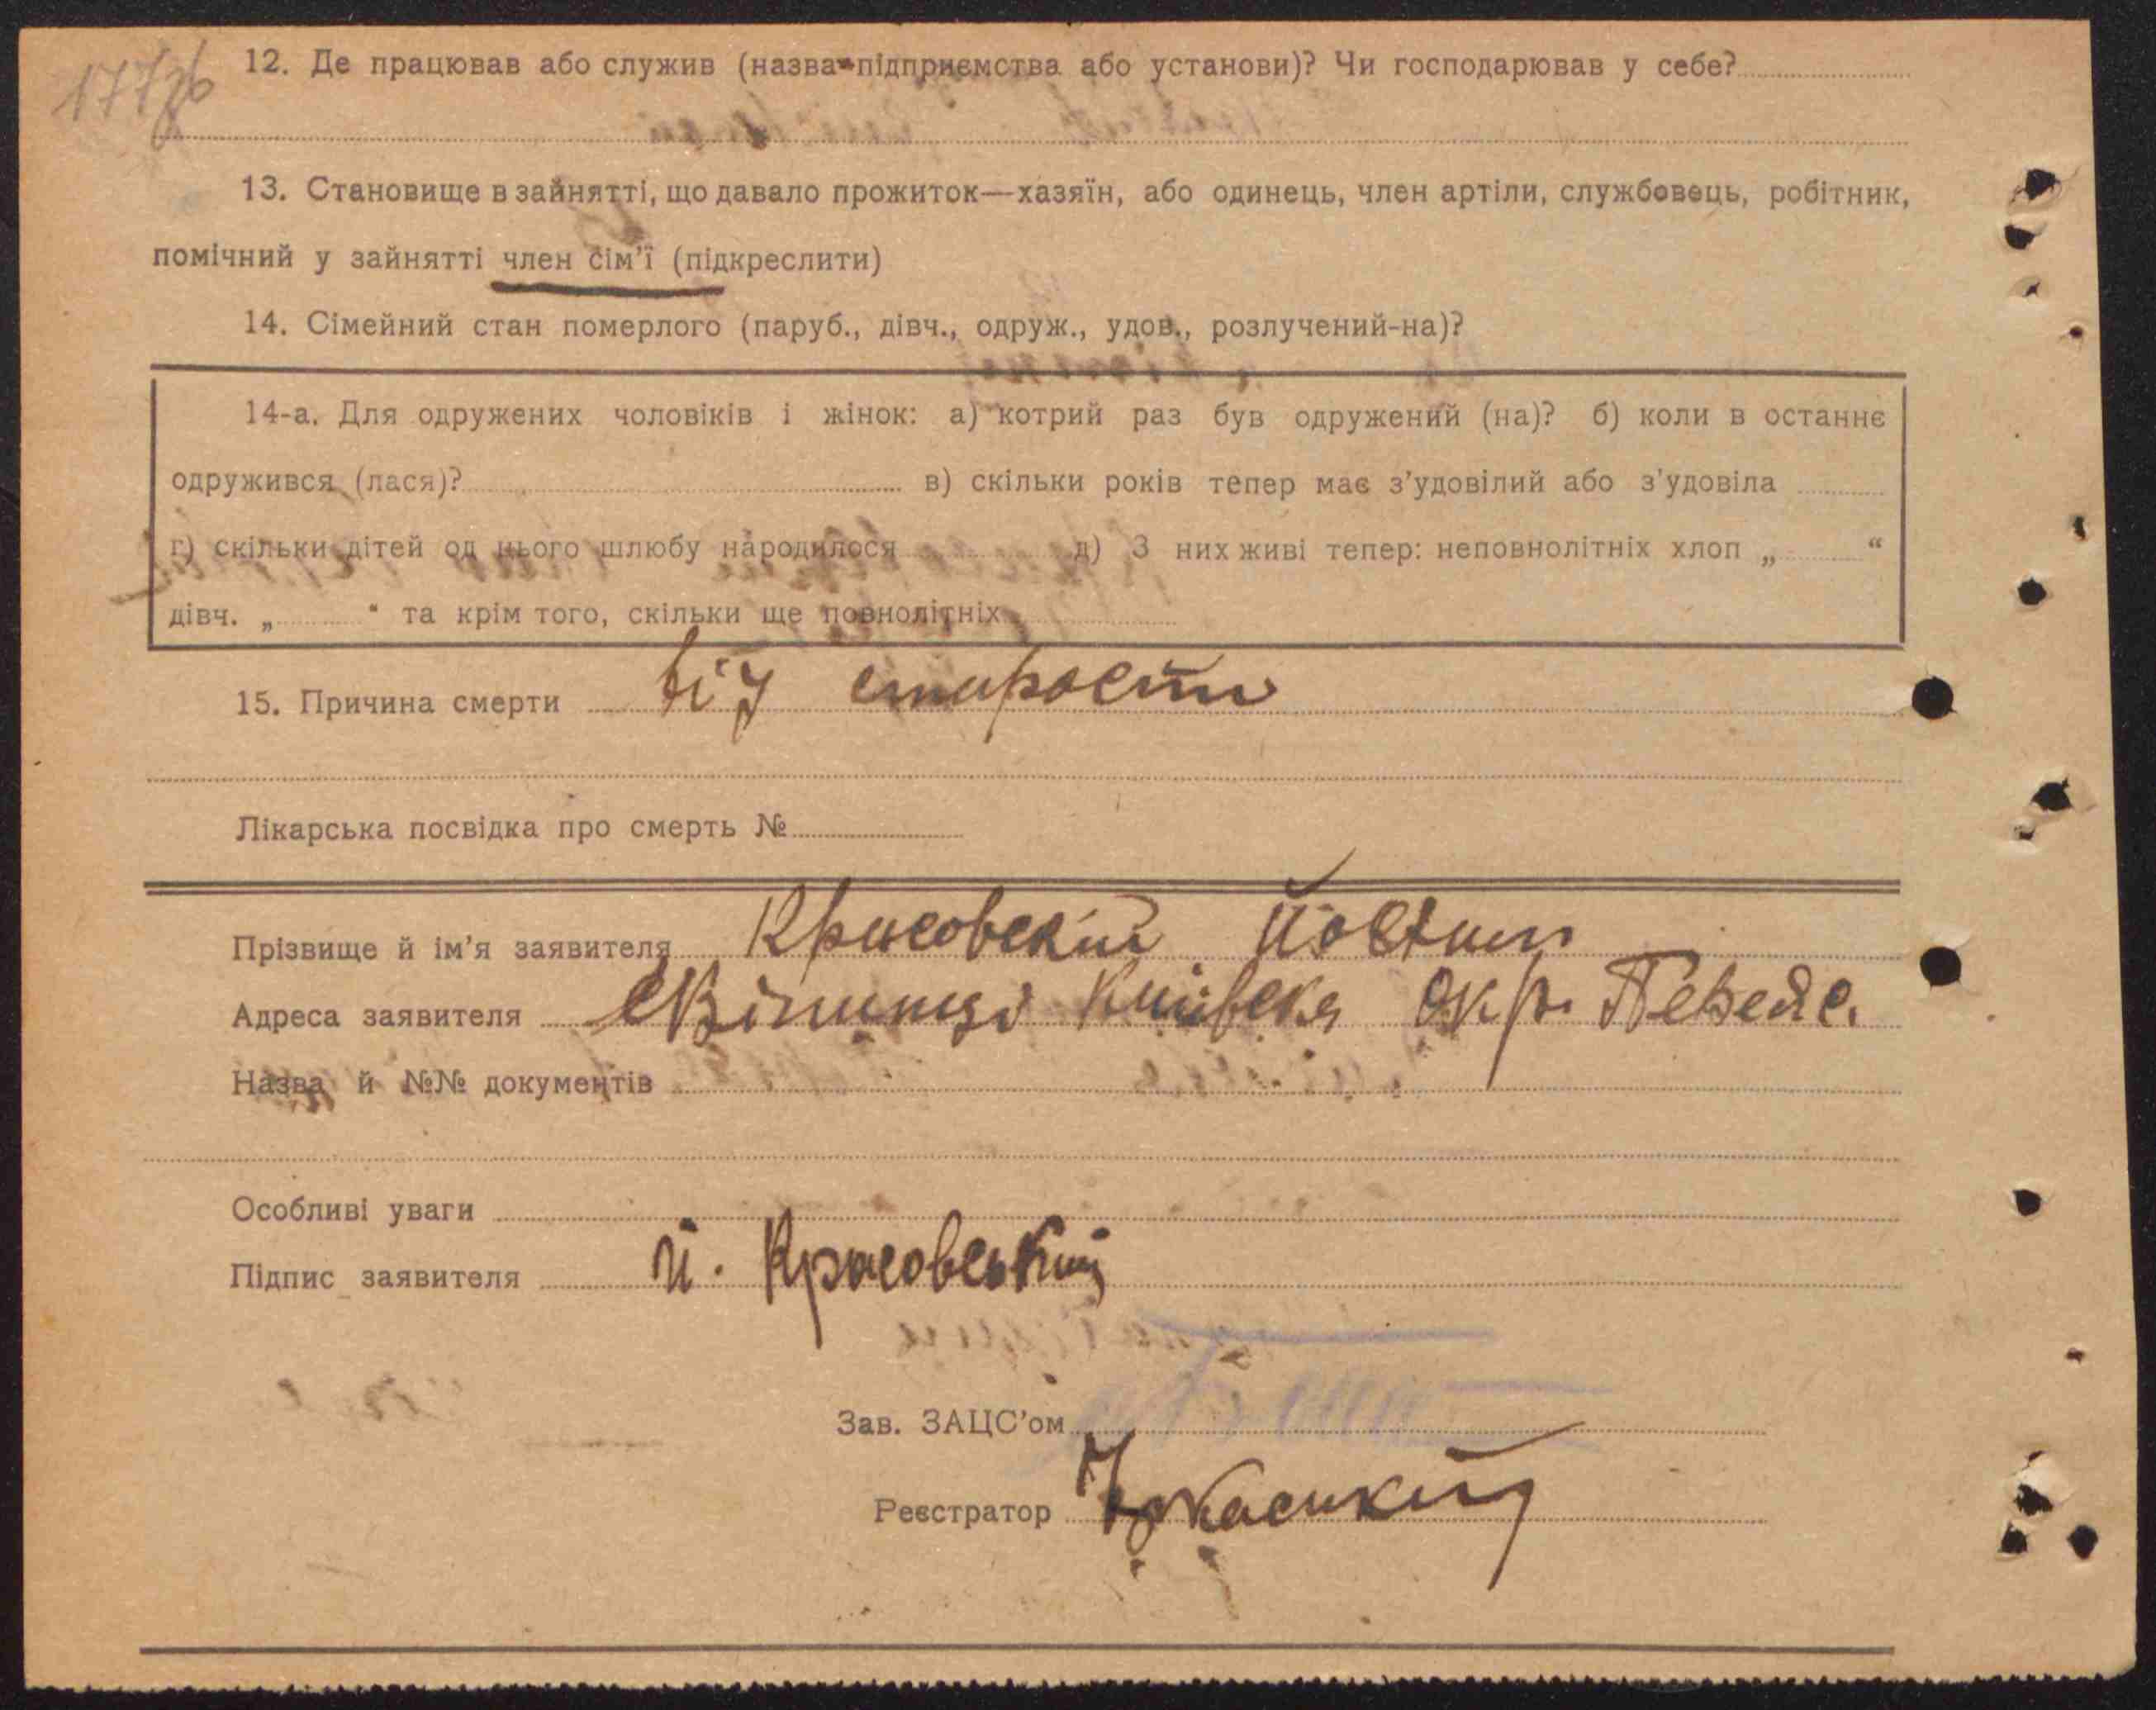 177зв
12. Де працював або служив (назва підприємства або установи)? Чи господарював у себе?
13. Становище в зайнятті, що давало прожиток—хазяїн, або одинець, член артіли, службовець, робітник,
помічний у зайнятті член сім'ї (підкреслити)
14. Сімейний стан померлого (паруб., дівч., одруж., удов., розлучений-на)?
14-а. Для одружених чоловіків і жінок: а) котрий раз був одружений (на)? б) коли в останнє
одружився (лася)? в) скільки років тепер має з'удовілий або з'удовіла
г) скільки дітей од цього шлюбу народилося д) З них живі тепер: неповнолітніх хлоп „ “
дівч. „ “ та крім того, скільки ще повнолітніх
15. Причина смерти від старости
Лікарська посвідка про смерть №
Прізвище й ім'я заявителя Красовский
Адреса заявителя Київска окр.
Назва й №№ документів
Особливі уваги
Підпис заявителя Й. Красовський
Зав. ЗАЦС'ом
Реєстратор